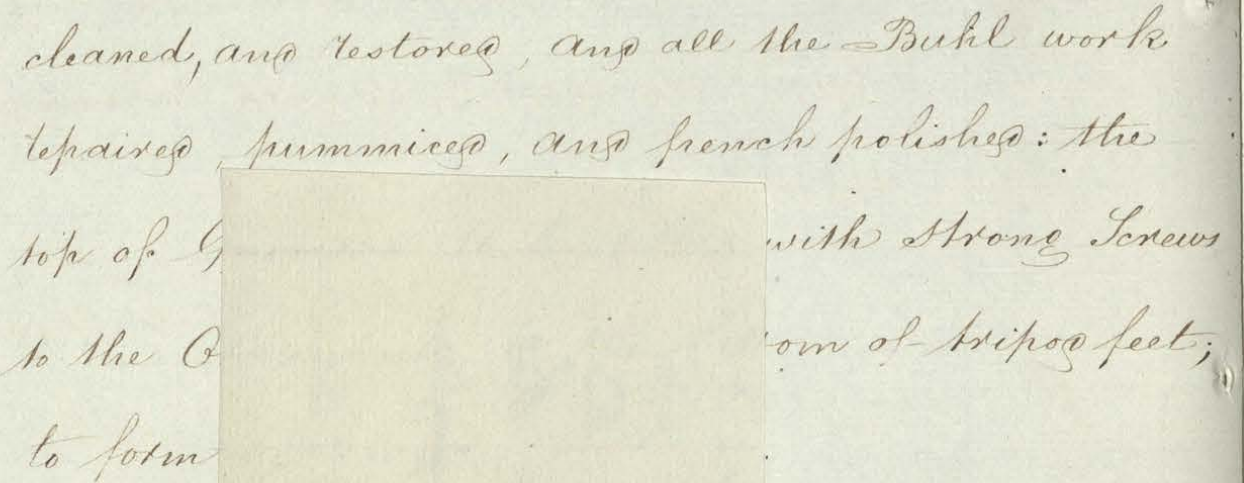 cleaned, and restored, and all the Buhl work
repaired, pummiced, and french polished: the
top of with strong Screws
to the of tripod feet;
to form